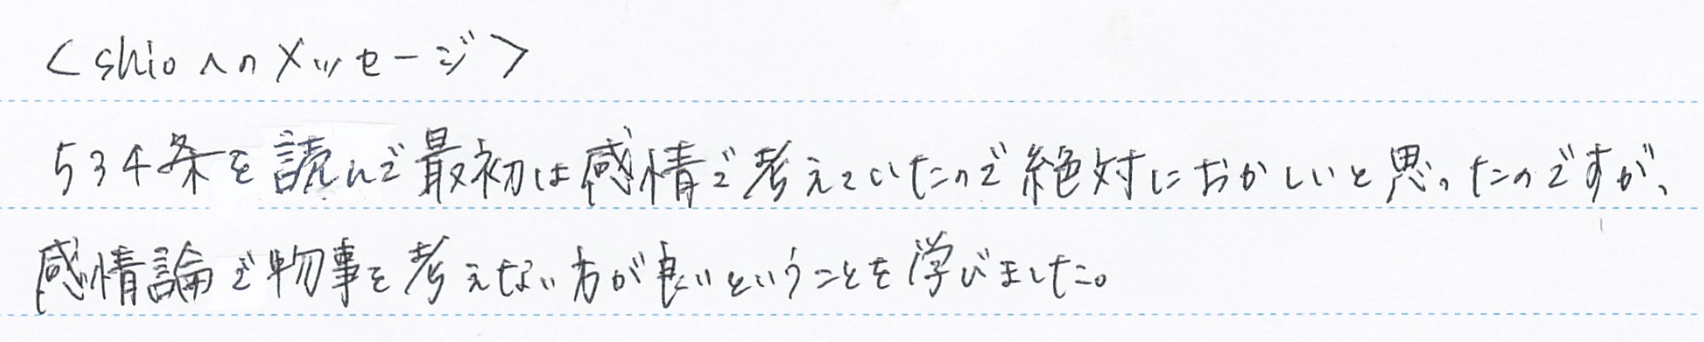 <shioへのメッセージ>
534条を読んで最初は感情で考えていたので絶対におかしいと思ったのですが、
感情論で物事を考えない方が良いということを学びました。